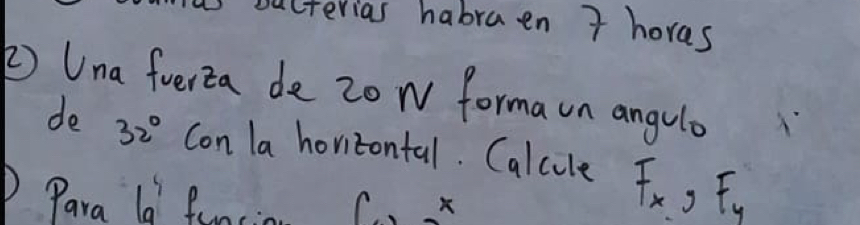 bacterias habra en 7 horas
2) Una fuerza de 20 N forma un angulo
de 32° con la horizontal. Calcule Fx, Fy
Para la